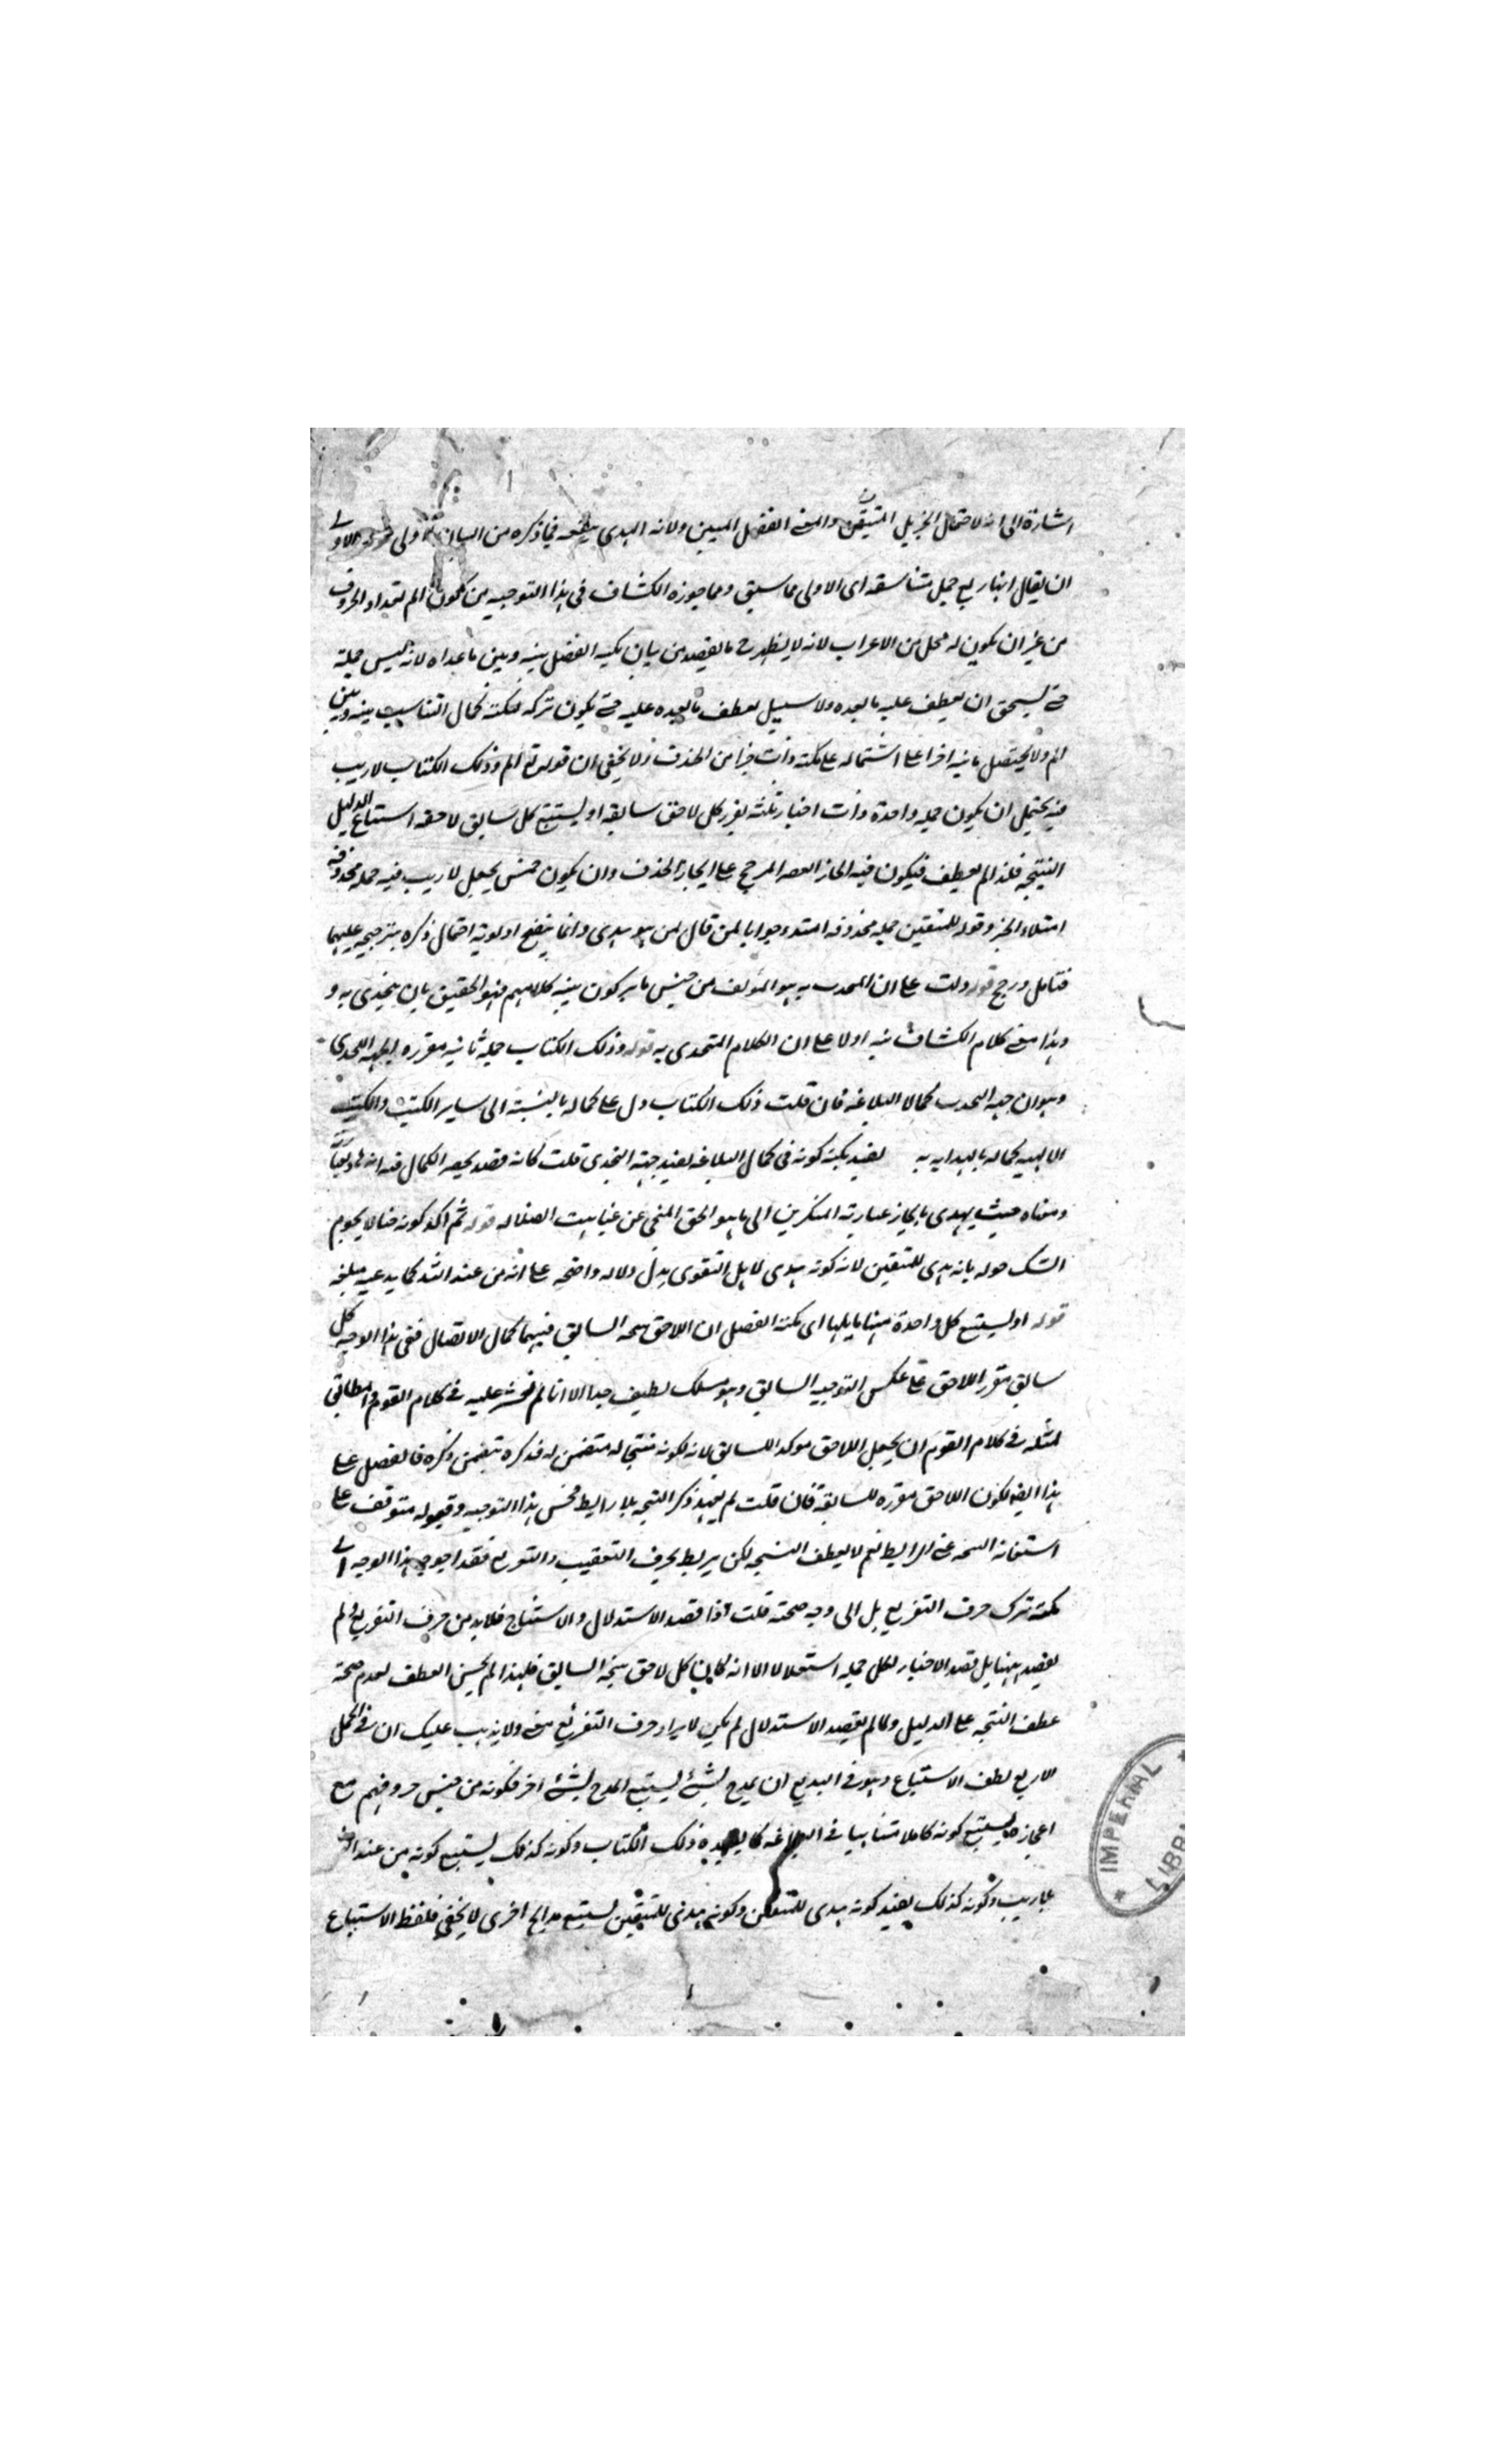 اشارة الى انه لاحتمال الجزيل المتيقن والمعنى الفضل المبين ولانه الهدى فيما ذكره من البيان اولى قوله والاولى
ان يقال انها اربع جمل متناسقة اى الاولى مما سبق ومما جوزه الكشاف فى هذا التوجيه من كون الم تعداد الحروف
من غير ان يكون له محل من الاعراب لانه لا يظهر ح ما يقصد من بيان نكتة الفصل بينه وبين ما عداه لانه ليس جملة
حتى يستحق ان يعطف عليه ما بعده ولا سبيل لعطف ما بعده عليه حتى يكون تركه لنكتة كمال التناسب بينه وبين
الم ولا يختص ثانيه اخرا على اشتماله على نكتة ذات جزا من الحذف ولا يخفى ان قوله تع الم وذلك الكتاب لا ريب
فيه يحتمل ان يكون جملة واحدة ذات اخبار ثلثة يقرر كل لاحق سابقه او يستتبع كل سابق لاحقه استتباع الدليل
النتيجة فلذا لم يعطف فيكون فيه ايجاز القصر المرجح على ايجاز الحذف وان يكون خمس يجعل لا ريب فيه جملة محذوفة
الخبر وقوله للمتقين جملة محذوفة المبتدء جوابا لمن قال لمن هو هدى وانما يتضح اولوية احتمال ذكره بترجيحه عليهما
فتامل ورجح قوله دلت على ان المتحدى به هو المؤلف من جنس ما يركبون منه كلامهم فهو الحقيق بان يتحدى به و
وهذا معنى كلام الكشاف نبه اولا على ان الكلام المتحدى به قوله وذلك الكتاب جملة ثانية مقررة لجهة التحدى
وهو ان جهة التحدى كمال البلاغة فان قلت ذلك الكتاب دل على كماله بالنسبة الى ساير الكتب والكتب
الالهية كماله بالهداية به لفيد نكتة كونه فى كمال البلاغة لفيد جهة التحدى قلت كانه قصد بحصر الكمال فيه انه
ومعناه حيث يهدى بايجاز عبارته المنكرين الى ما هو الحق المنجى عن غياهب الضلاله قوله ثم اكد كونه حقا لا يحوم
الشك حوله بانه هدى للمتقين لانه كونه هدى لاهل التقوى يدل دلالة واضحة على انه من عند الله كما يدعيه مبلغه
قوله او يستتبع كل واحدة منها ما يليها اى نكتة الفصل ان اللاحق نتيجة السابق فبينهما كمال الاتصال ففى هذا الوجه كل
سابق مقرر اللاحق على عكس التوجيه السابق وهو مسلك لطيف جدا الا انا لم نعثر عليه فى كلام القوم والمطابق
لمثله فى كلام القوم ان يجعل اللاحق موكدا للسابق لانه لكونه منتجا له متضمن له فذكره يتضمن ذكره فالفصل على
هذا ايضا لكون اللاحق مقررة للسابقة فان قلت لم يعهد ذكر النتيجة بلا رابط فحسن هذا التوجيه وقبوله متوقف على
استغنائه النتيجة عن الرابط نعم لا يعطف النتيجة لكن يربط بحرف التعقيب والتفريع فقد احوج هذا الوجه الى
نكتة ترك حرف التفريع بل الى وجه صحته قلت اذا قصد الاستدلال والاستنتاج فلا بد من حرف التفريع ولم
يقصد ههنا بل قصد الاخبار لكل جملة استقلالا الا انه لما كان كل لاحق نتيجة السابق فلهذا لم يحسن العطف لعدم صحة
عطف النتيجة على الدليل ولما لم يقصد الاستدلال لم يكن لايراد حرف التفريع معنى ولا يذهب عليك ان فى الجمل
الاربع لطف الاستتباع وهو فى البديع ان يمدح بشئ يستتبع المدح بشئ اخر فكونه من جنس حروفهم مع
اعجازه يستتبع كونه كاملا متناهيا فى البلاغة كما يفيده ذلك الكتاب وكونه كذلك يستتبع كونه من عند الله
بلا ريب وكونه كذلك يفيد كونه هدى للمتقين وكونه هدى للمتقين يستتبع مدايح اخرى لا يخفى فلفظ الاستتباع
IMPERIAL
LIBR